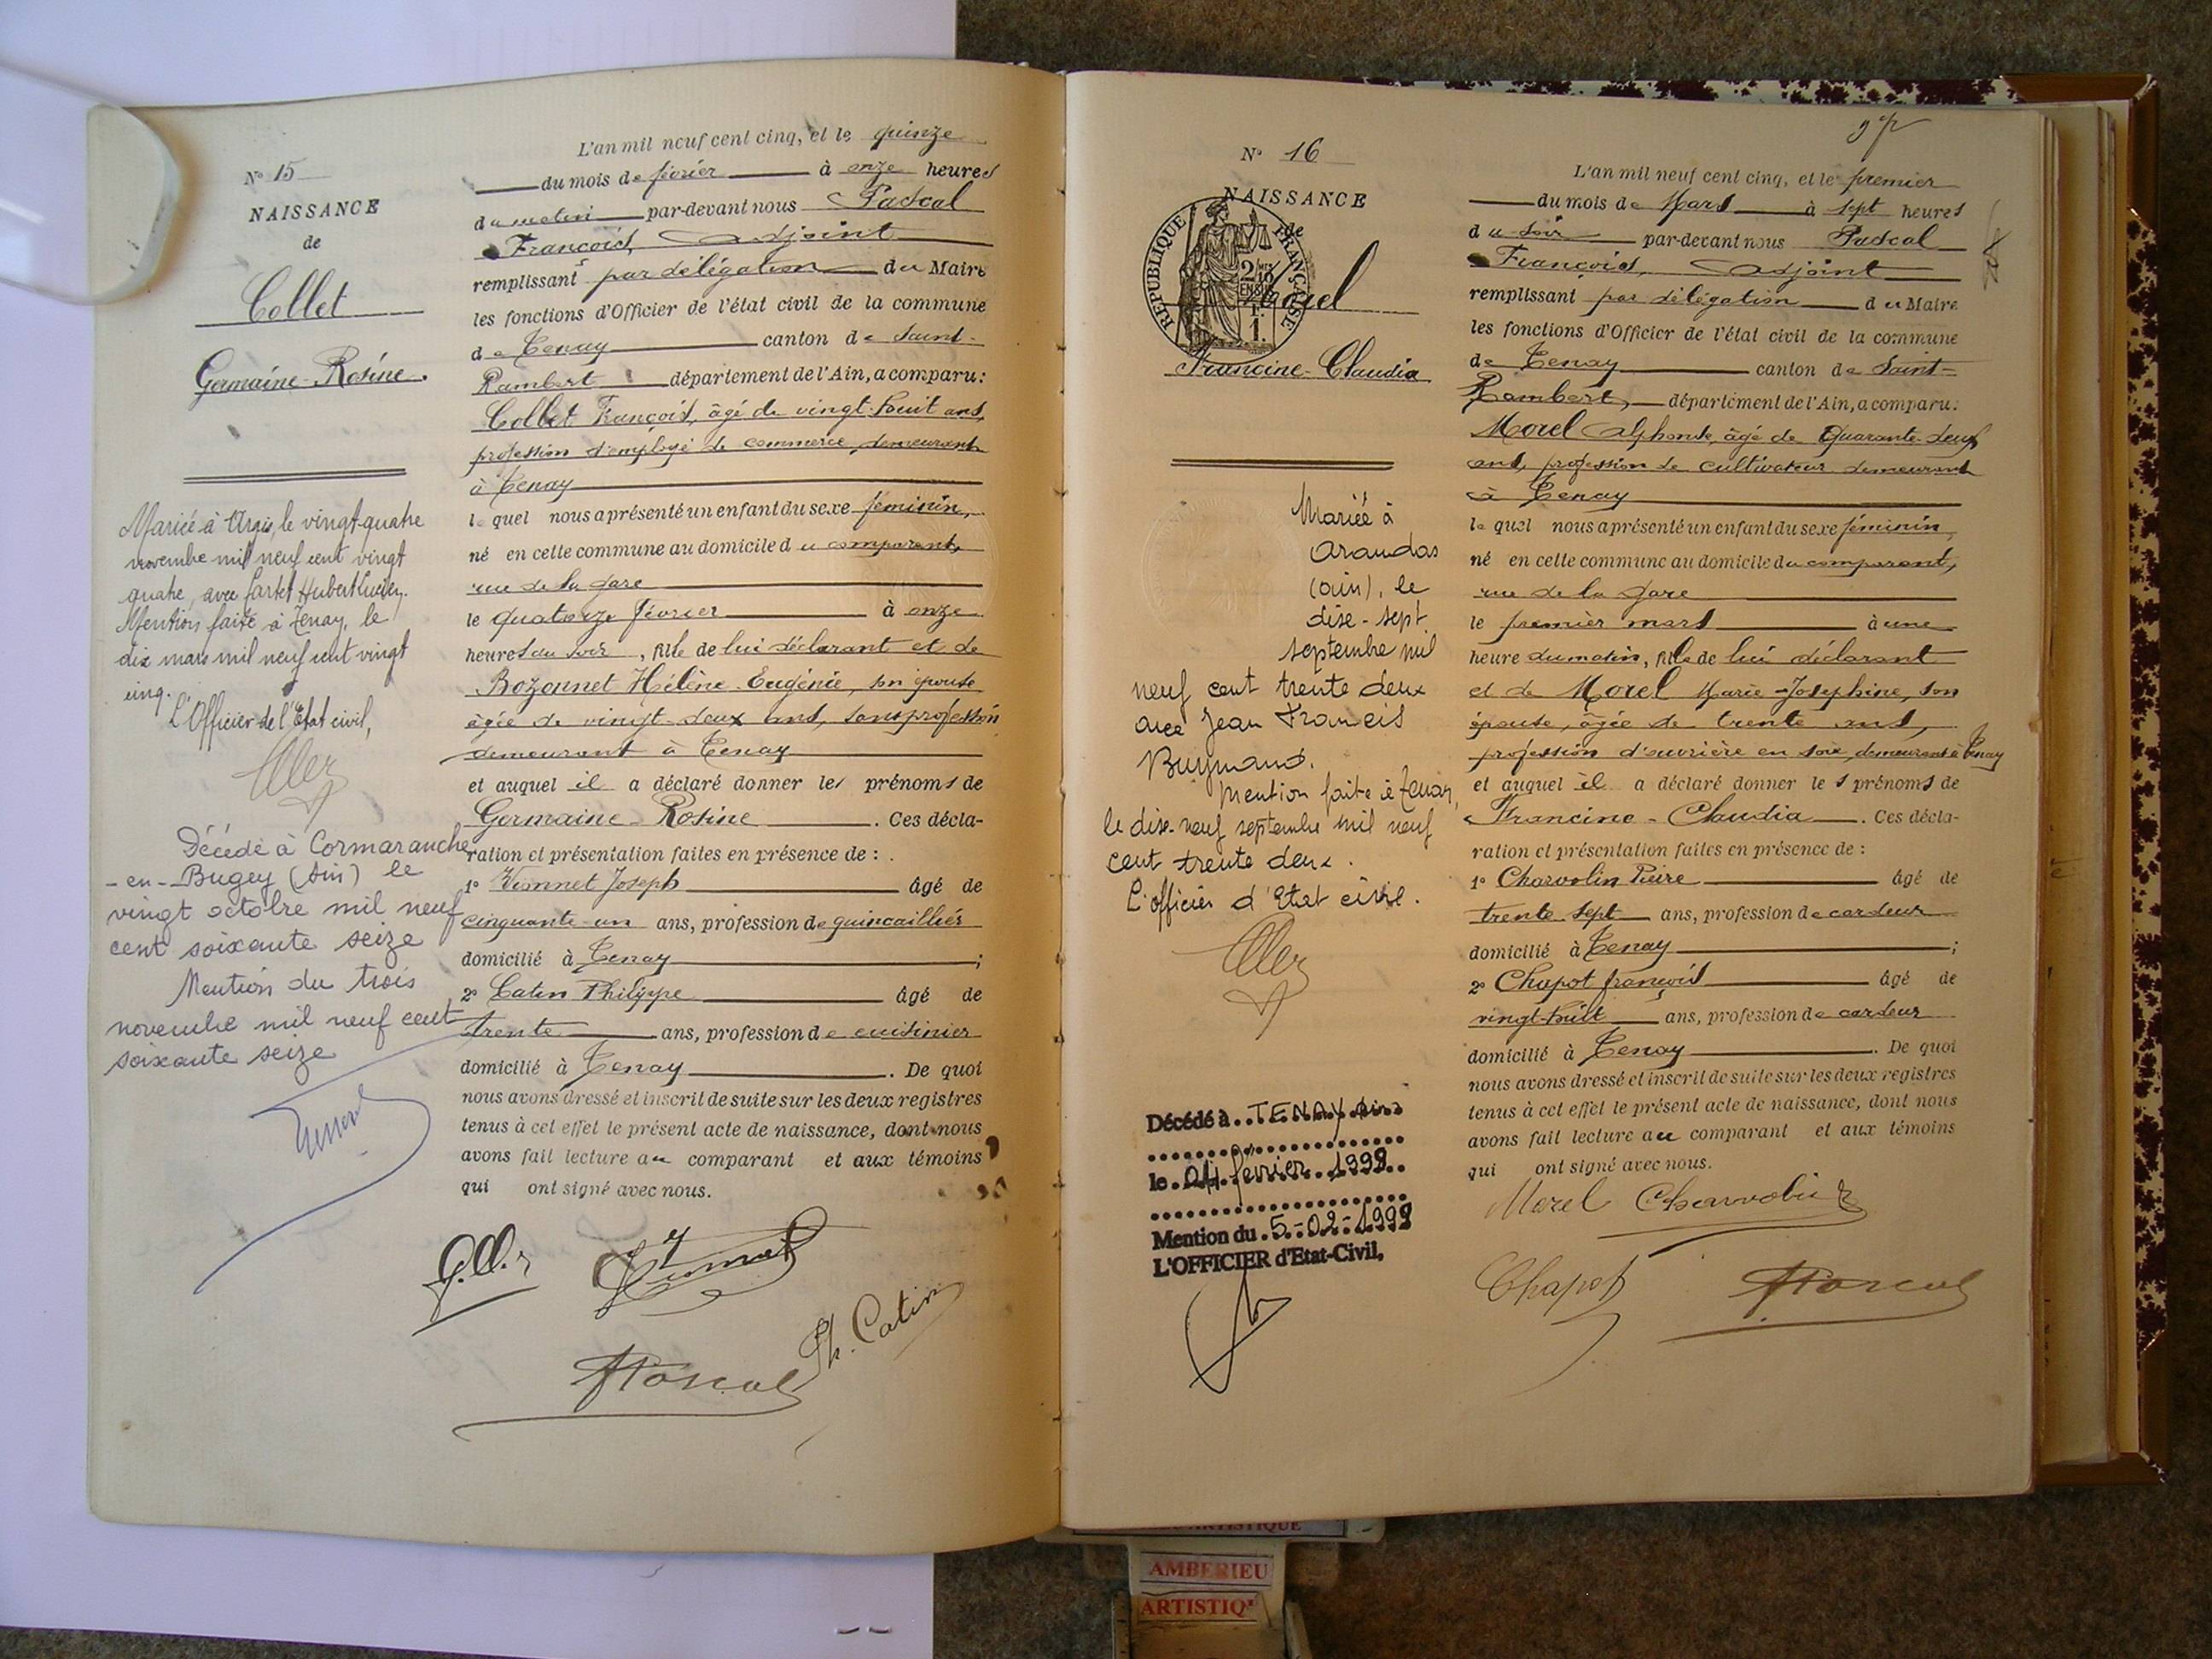 N° 15
NAISSANCE
de
Collet
Germaine-Rosine.
Mariée à Argis, le vingt-quatre
novembre mil neuf cent vingt
quatre, avec Hubert
Mention faite à Tenay, le
dix mars mil neuf cent vingt
cinq.
L'Officier de l'Etat civil,
Décédé à Cormaranche
-en-Bugey (Ain) le
vingt octobre mil neuf
cent soixante seize
Mention du trois
novembre mil neuf cent
soixante seize
L'an mil neuf cent cinq, et le quinze
du mois de février à onze heures
du matin par-devant nous Pascal
François, adjoint
remplissant par délégation du Maire
les fonctions d'Officier de l'état civil de la commune
de Tenay canton de Saint-
Rambert département de l'Ain, a comparu:
Collet François, âgé de vingt-huit ans,
profession d'employé de commerce, demeurant
à Tenay
lequel nous a présenté un enfant du sexe féminin,
né en cette commune au domicile du comparant,
rue de la gare
le quatorze février à onze
heures du soir, fille de lui déclarant et de
Bozonnet Hélène-Eugénie, son épouse
âgée de vingt-deux ans, sans profession
demeurant à Tenay
et auquel il a déclaré donner les prénoms de
Germaine-Rosine. Ces décla-
ration et présentation faites en présence de :
1° Vionnet Joseph âgé de
cinquante-un ans, profession de quincaillier
domicilié à Tenay;
2° Catin Philippe âgé de
trente ans, profession de cuisinier
domicilié à Tenay. De quoi
nous avons dressé et inscrit de suite sur les deux registres
tenus à cet effet le présent acte de naissance, dont nous
avons fait lecture au comparant et aux témoins
qui ont signé avec nous.
Ph. Catin
Pascal
N° 16
NAISSANCE
de
RÉPUBLIQUE FRANÇAISE
Morel
Francine-Claudia
Mariée à
Arandas
(Ain), le
dise-sept
septembre mil
neuf cent trente deux
avec Jean Francis
Buynand.
Mention faite à Tenay,
le dise-neuf septembre mil neuf
cent trente deux.
L'officier d'Etat civil.
Décédé à TENAY Ain
le 04 février 1999
Mention du 5-02-1999
L'OFFICIER d'Etat-Civil,
L'an mil neuf cent cinq, et le premier
du mois de Mars à sept heures
du soir par-devant nous Pascal
François, adjoint
remplissant par délégation du Maire
les fonctions d'Officier de l'état civil de la commune
de Tenay canton de Saint-
Rambert, département de l'Ain, a comparu:
Morel Alphonse, âgé de Quarante-deux
ans, profession de cultivateur demeurant
à Tenay
lequel nous a présenté un enfant du sexe féminin,
né en cette commune au domicile du comparant,
rue de la gare
le premier mars à une
heure du matin, fille de lui déclarant
et de Morel Marie-Joséphine, son
épouse, âgée de trente ans,
profession d'ouvrière en soie, demeurant à Tenay
et auquel il a déclaré donner les prénoms de
Francine-Claudia. Ces décla-
ration et présentation faites en présence de :
1° Charvolin Pierre âgé de
trente-sept ans, profession de cardeur
domicilié à Tenay;
2° Chapot françois âgé de
vingt-huit ans, profession de cardeur
domicilié à Tenay. De quoi
nous avons dressé et inscrit de suite sur les deux registres
tenus à cet effet le présent acte de naissance, dont nous
avons fait lecture au comparant et aux témoins
qui ont signé avec nous.
Morel Charvolin
Chapot Pascal
ARTISTIQUE
AMBERIEU
ARTISTIQ